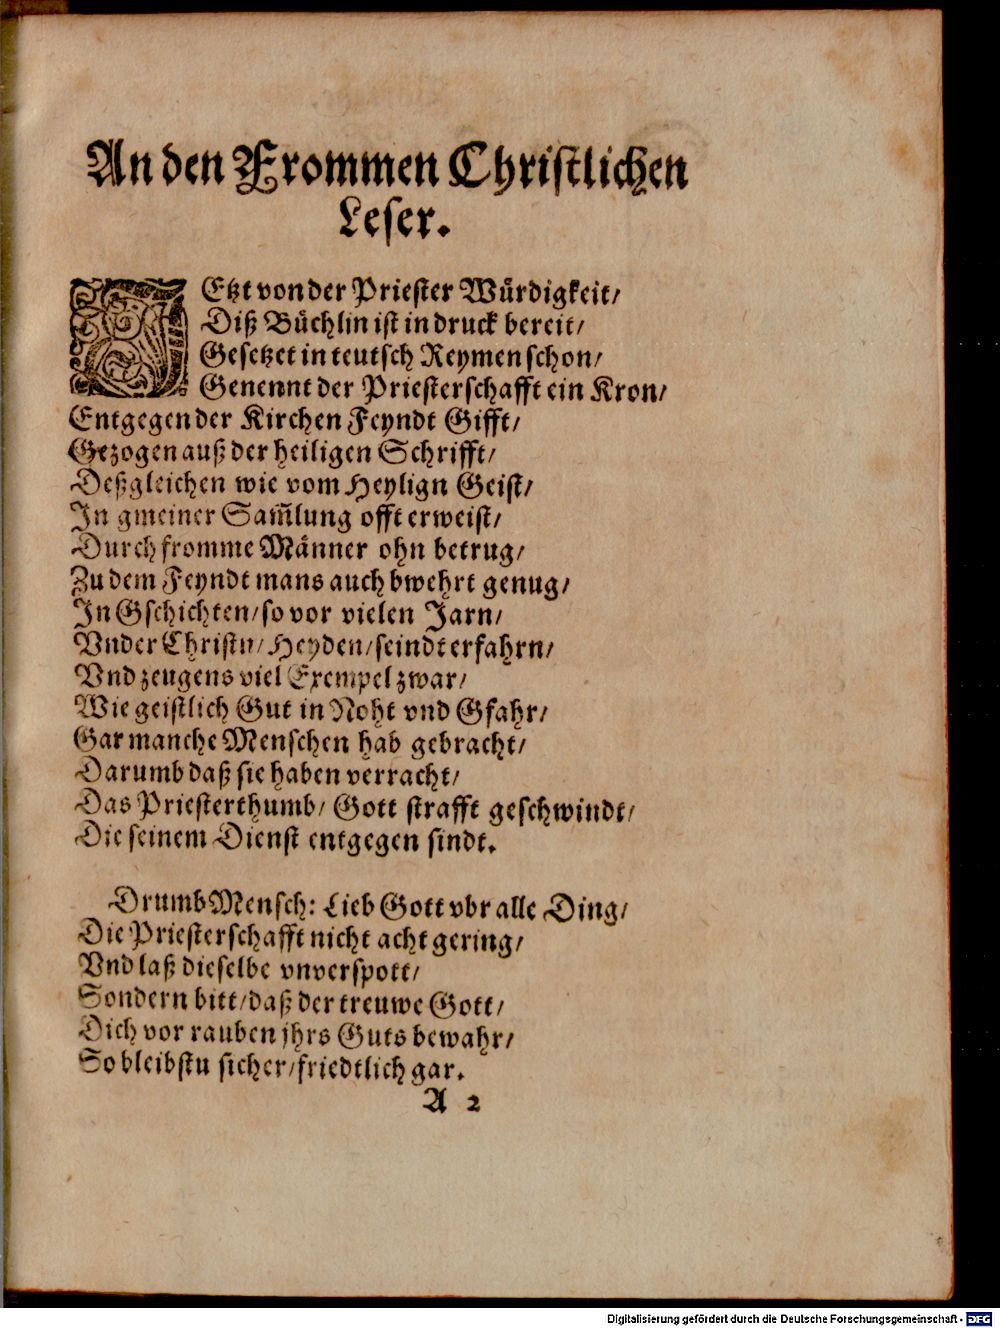 An den Frommen Christlichen
Leser.
JEtzt von der Priester Würdigkeit/
Diß Büchlin ist in druck bereit/
Gesetzet in teutsch Reymen schon/
Genennt der Priesterschafft ein Kron/
Entgegen der Kirchen Feyndt Gifft/
Gezogen auß der heiligen Schrifft/
Deßgleichen wie vom Heylign Geist/
In gmeiner Sam̃lung offt erweist/
Durch fromme Männer ohn betrug/
Zu dem Feyndt mans auch bwehrt genug/
In Gschichten/ so vor vielen Jarn/
Vnder Christn/ Heyden/ seindt erfahrn/
Vnd zeugens viel Exempel zwar/
Wie geistlich Gut in Noht vnd Gfahr/
Gar manche Menschen hab gebracht/
Darumb daß sie haben verracht/
Das Priesterthumb/ Gott strafft geschwindt/
Die seinem Dienst entgegen sindt.
Drumb Mensch: Lieb Gott vbr alle Ding/
Die Priesterschafft nicht acht gering/
Vnd laß dieselbe vnverspott/
Sondern bitt/ daß der treuwe Gott/
Dich vor rauben jhrs Guts bewahr/
So bleibstu sicher/ friedtlich gar.
A 2
Digitalisierung gefördert durch die Deutsche Forschungsgemeinschaft - DFG